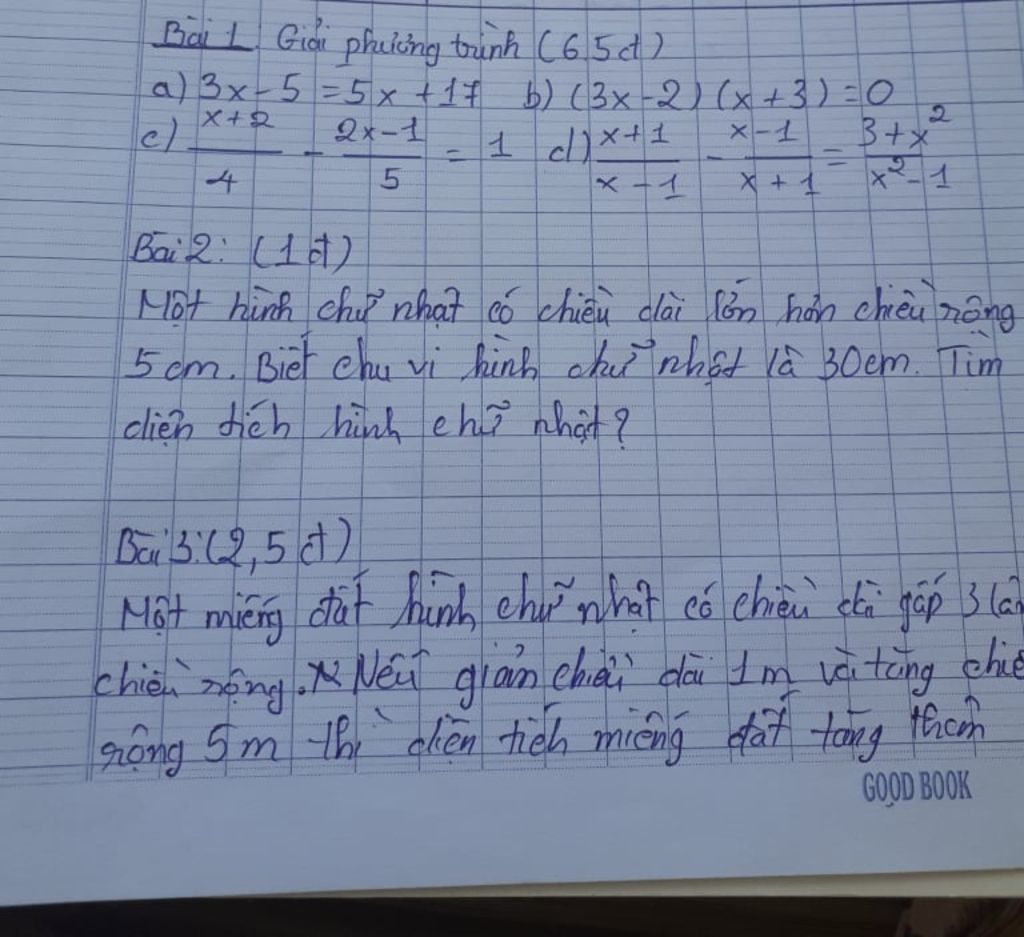 Bài 1 Giải phương trình (6,5đ)
a) 3x - 5 = 5x + 17 b) (3x - 2) (x + 3) = 0
c) x + 2 / 4 - 2x - 1 / 5 = 1 d) x + 1 / x - 1 - x - 1 / x + 1 = 3 + x² / x² - 1
Bài 2: (1đ)
Một hình chữ nhật có chiều dài lớn hơn chiều rộng
5 cm. Biết chu vi hình chữ nhật là 30cm. Tìm
diện tích hình chữ nhật?
Bài 3: (2,5 đ)
Một miếng đất hình chữ nhật có chiều dài gấp 3 lần
chiều rộng. Nếu giảm chiều dài 1m và tăng chiề
rộng 5m thì diện tích miếng đất tăng thêm
GOOD BOOK